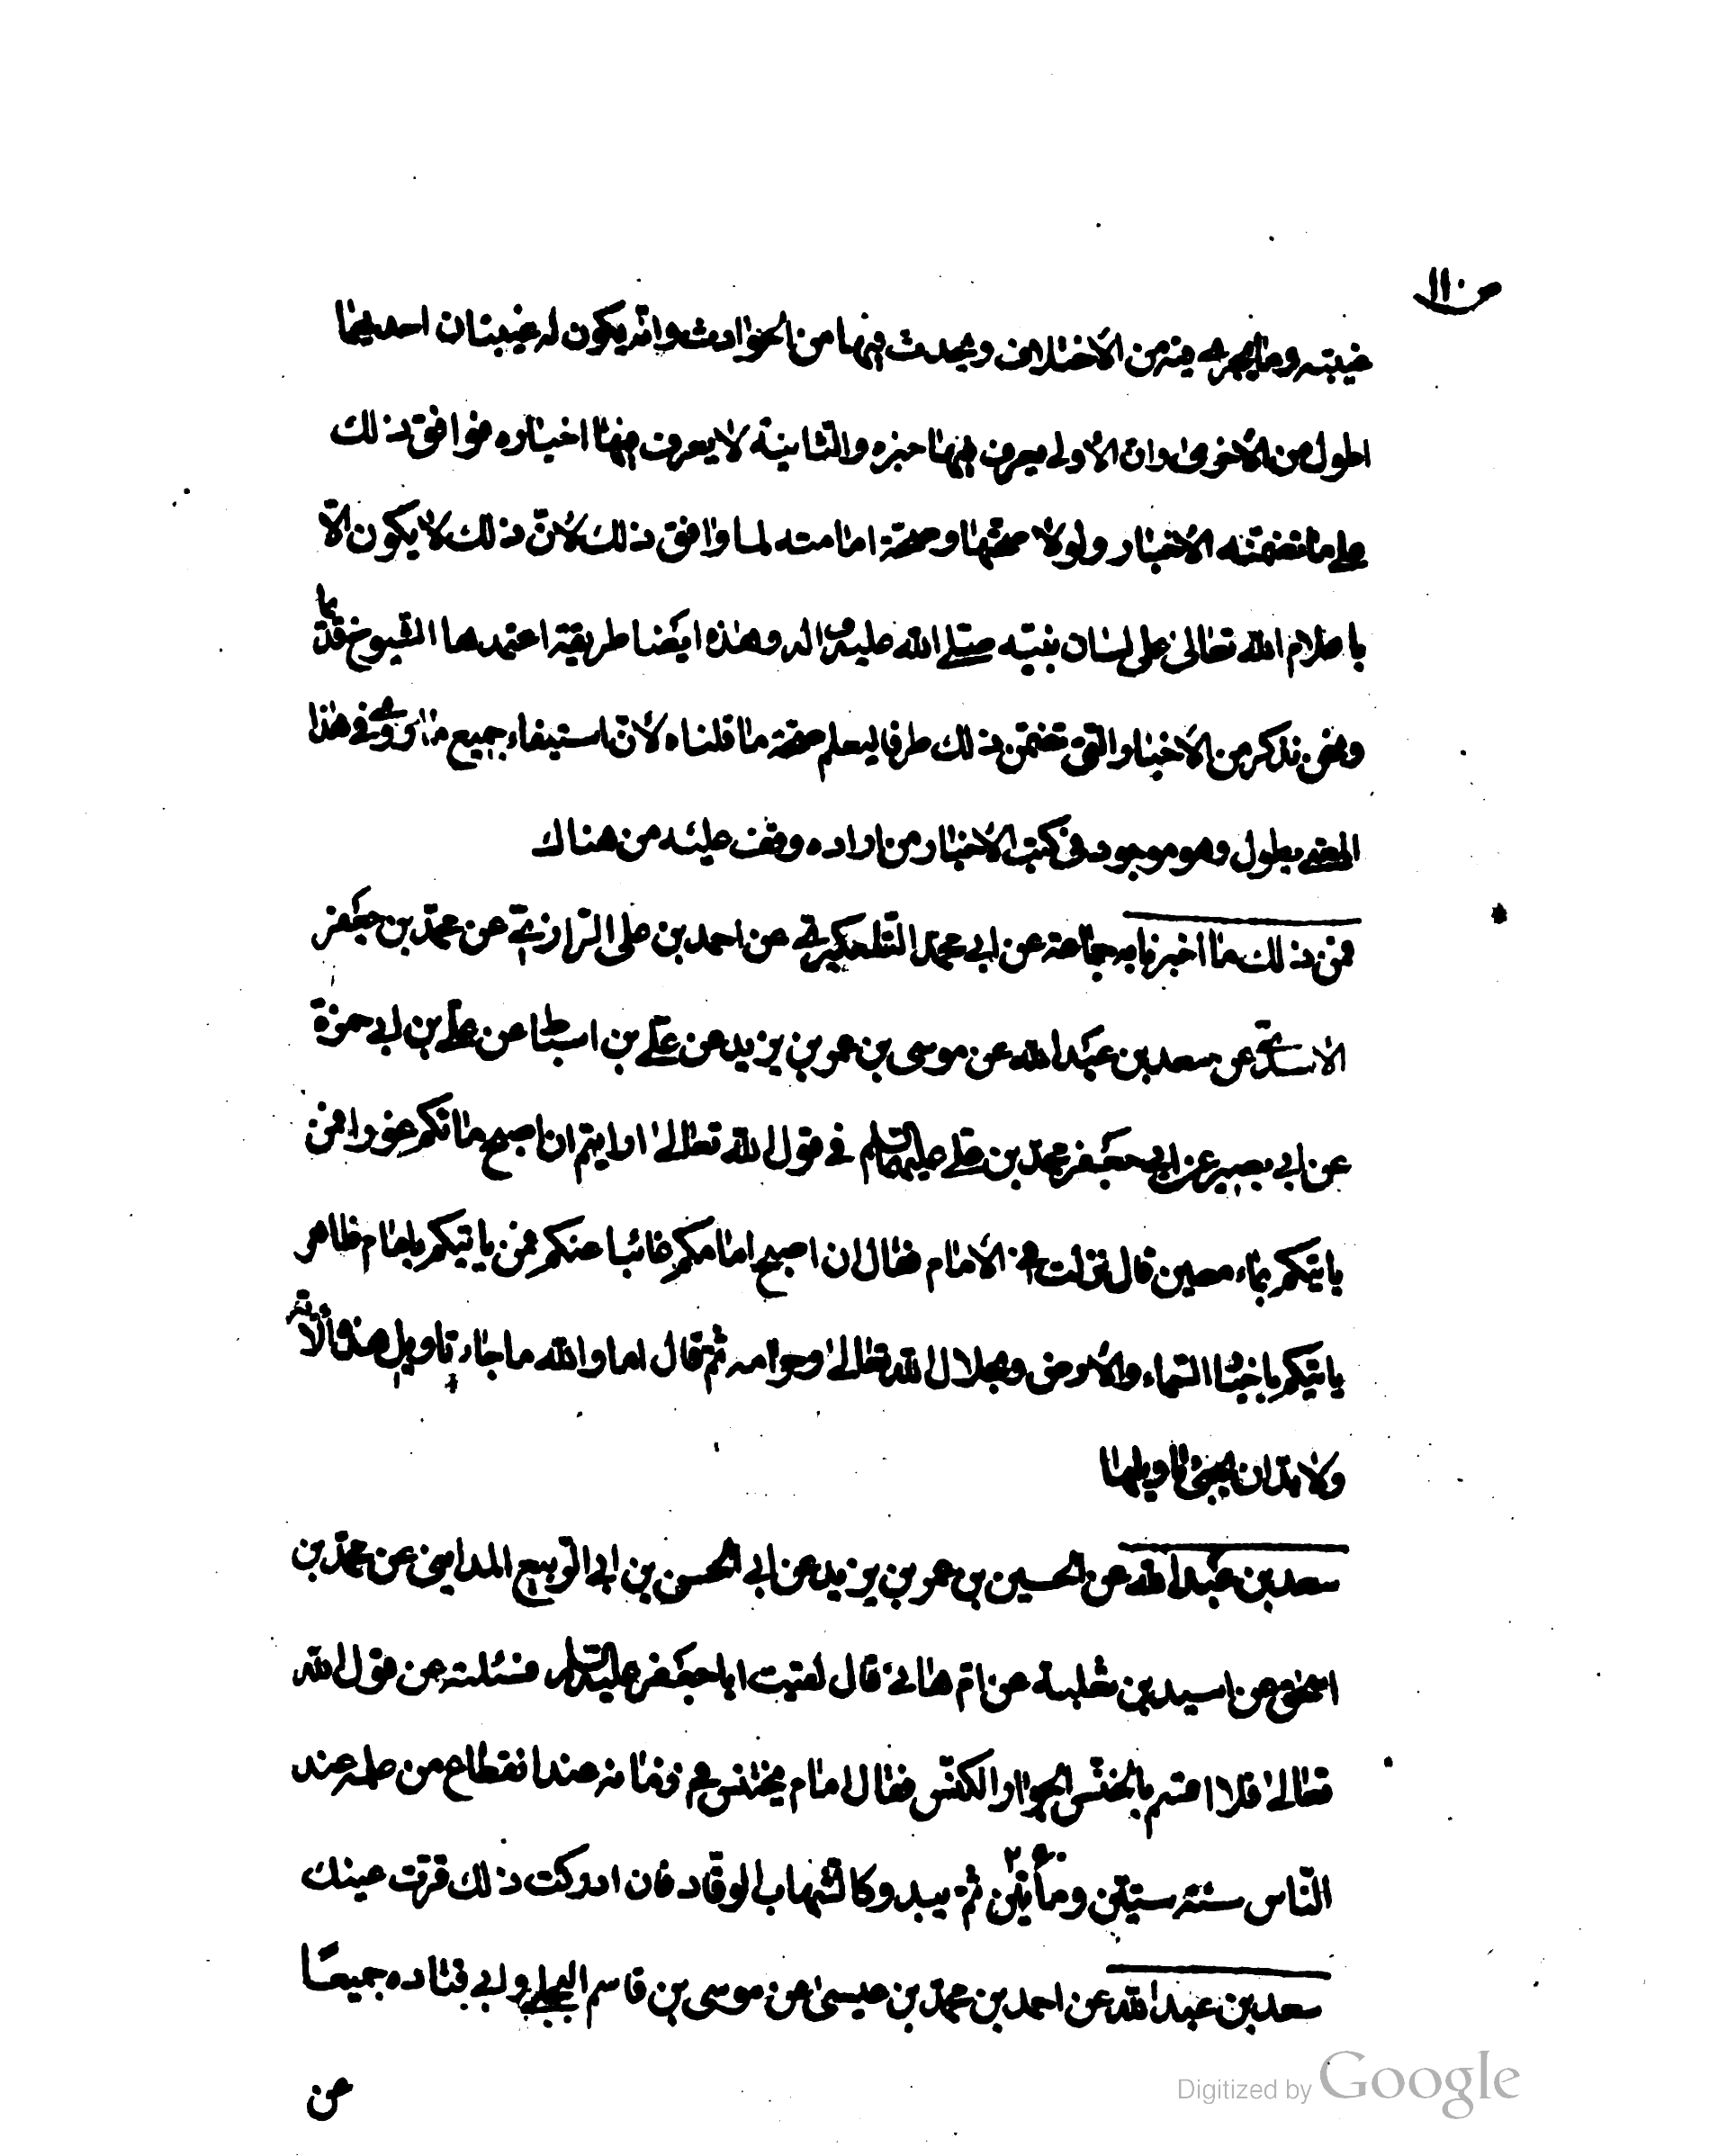 ص ١١٠
غيبته وما يجري فيه من الاختلاف ويحدث فيها من الحوادث وانه يكون له غيبتان احديهما
اطول من الاخرى وان الاولى يعرف فيها خبره والثانية لا يعرف فيها اخباره فوافق ذلك
على ما تضمنته الاخبار ولولا صحتها وصحة امامته لما وافق ذلك لان ذلك لا يكون الا
باعلام الله تعالى على لسان نبيه صلى الله عليه واله وهذه ايضا طريقة اعتمدها الشيوخ قديما
ونحن نذكر من الاخبار التي تضمن ذلك طرفا ليعلم صحة ما قلناه لان استيفاء جميع ما روي في هذا
المعنى يطول وهو موجود في كتب الاخبار من اراده وقف عليه من هناك
فمن ذلك ما اخبرنا به جماعة عن ابي محمد التلعكبري عن احمد بن علي الرازي عن محمد بن جعفر
الاسدي عن سعد بن عبد الله عن موسى بن عمر بن يزيد عن علي بن اسباط عن علي بن ابي حمزة
عن ابي بصير عن ابي جعفر محمد بن علي عليهما السلم في قول الله تعالى ارايتم ان اصبح ماؤكم غورا فمن
ياتيكم بماء معين قال نزلت في الامام فقال ان اصبح امامكم غائبا عنكم فمن ياتيكم بامام ظاهر
ياتيكم باخبار السماء والارض وبحلال الله تعالى وحرامه ثم قال اما والله ما جاء تاويل هذه الاية
ولا بد ان يجئ تاويلها
سعد بن عبد الله عن الحسين بن عمر بن يزيد عن ابي الحسن بن ابي الربيع المدايني عن محمد بن
اسحق عن اسيد بن ثعلبة عن ام هانئ قال لقيت ابا جعفر عليه السلم فسئلته عن قول الله
تعالى فلا اقسم بالخنس الجوار الكنس فقال امام يخنس في زمانه عند انقطاع من علمه عند
الناس سنة ستين ومأتين ٢٦٠ ثم يبدو كالشهاب الوقاد فان ادركت ذلك قرت عينك
سعد بن عبد الله عن احمد بن محمد بن عيسى عن موسى بن قاسم البجلي وابي قتاده جميعا
عن
Digitized by Google